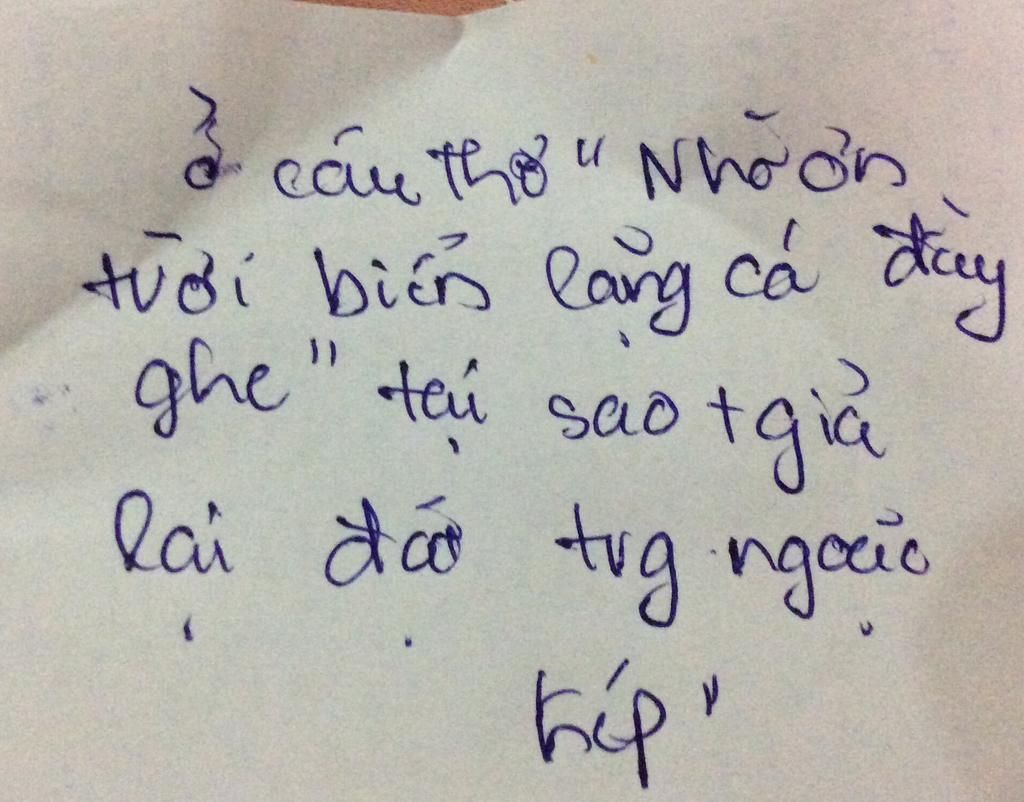 ở câu thơ " Nhờ ơn
trời biển lặng cá đầy
ghe " tại sao t giả
lại đặt trg ngoặc
kép "